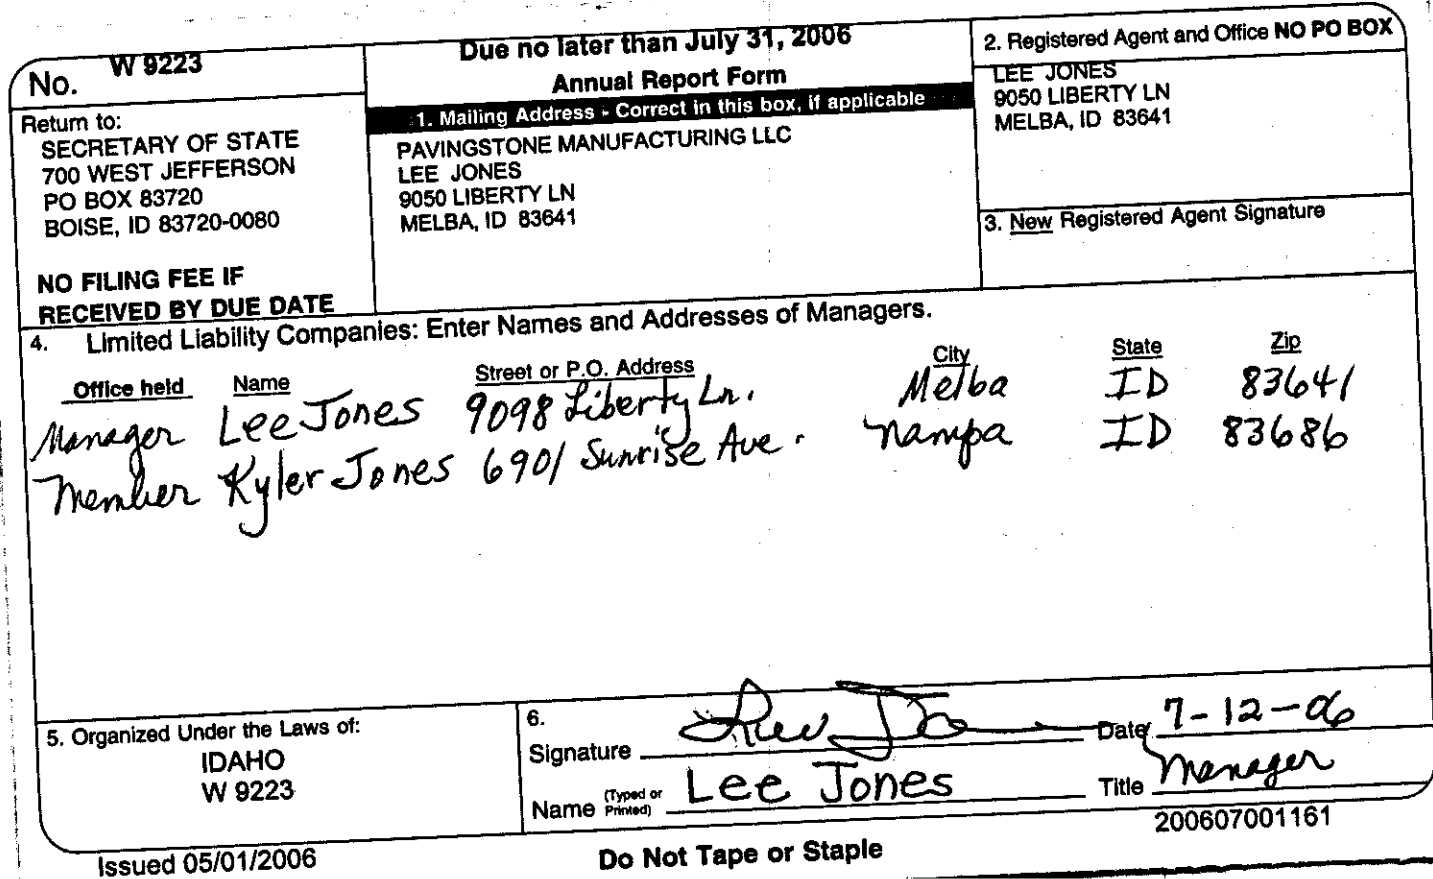 No. W 9223
Return to:
SECRETARY OF STATE
700 WEST JEFFERSON
PO BOX 83720
BOISE, ID 83720-0080
NO FILING FEE IF
RECEIVED BY DUE DATE
Due no later than July 31, 2006
Annual Report Form
1. Mailing Address - Correct in this box, if applicable
PAVINGSTONE MANUFACTURING LLC
LEE JONES
9050 LIBERTY LN
MELBA, ID 83641
2. Registered Agent and Office NO PO BOX
LEE JONES
9050 LIBERTY LN
MELBA, ID 83641
3. New Registered Agent Signature
4. Limited Liability Companies: Enter Names and Addresses of Managers.
Office held Name Street or P.O. Address City State Zip
Manager Lee Jones 9098 Liberty Ln. Melba ID 83641
Member Kyler Jones 6901 Sunrise Ave. Nampa ID 83686
5. Organized Under the Laws of:
IDAHO
W 9223
6.
Signature Lee Jo Date 7-12-06
Name (Typed or Printed) Lee Jones Title Manager
200607001161
Issued 05/01/2006
Do Not Tape or Staple